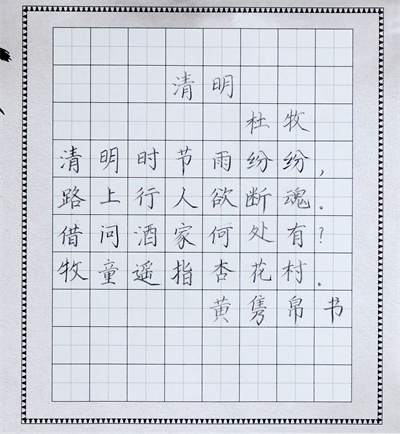 清明
杜牧
清明时节雨纷纷，
路上行人欲断魂。
借问酒家何处有？
牧童遥指杏花村。
黄隽帛书